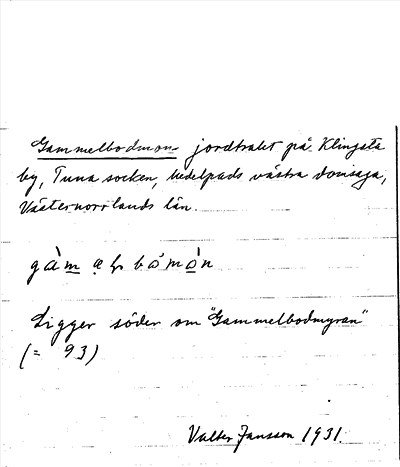 Gammelbodmon jordtrakt på Klingsta
by, Tuna socken, Medelpads västra domsaga,
Västernorrlands län.
Ligger söder om "Gammelbodmyran"
(= 93)
Valter Jansson 1931.